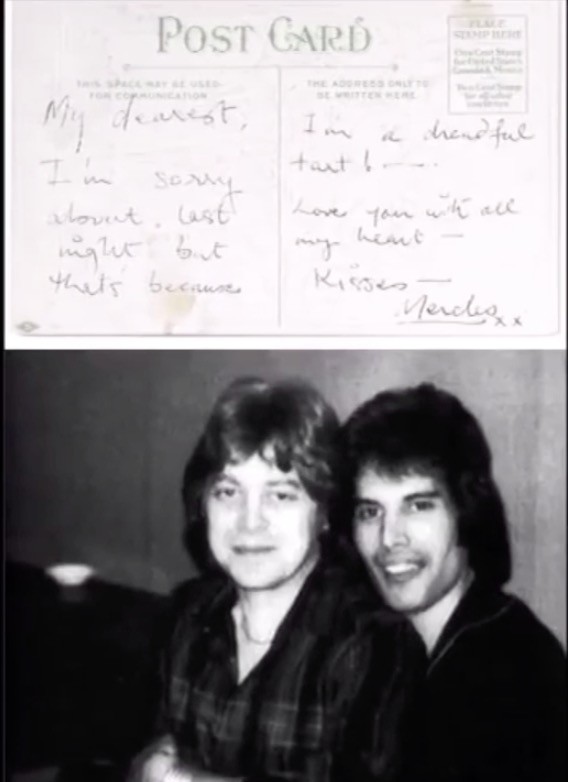 POST CARD
PLACE
STAMP HERE
One Cent Stamp
for United States
Two Cent Stamp
for all other
countries
THIS SPACE MAY BE USED
FOR COMMUNICATION
My dearest,
I'm sorry
about last
night but
thats because
THE ADDRESS ONLY TO
BE WRITTEN HERE
I'm a dreadful
tart
Love you with all
my heart —
Kisses —
x x